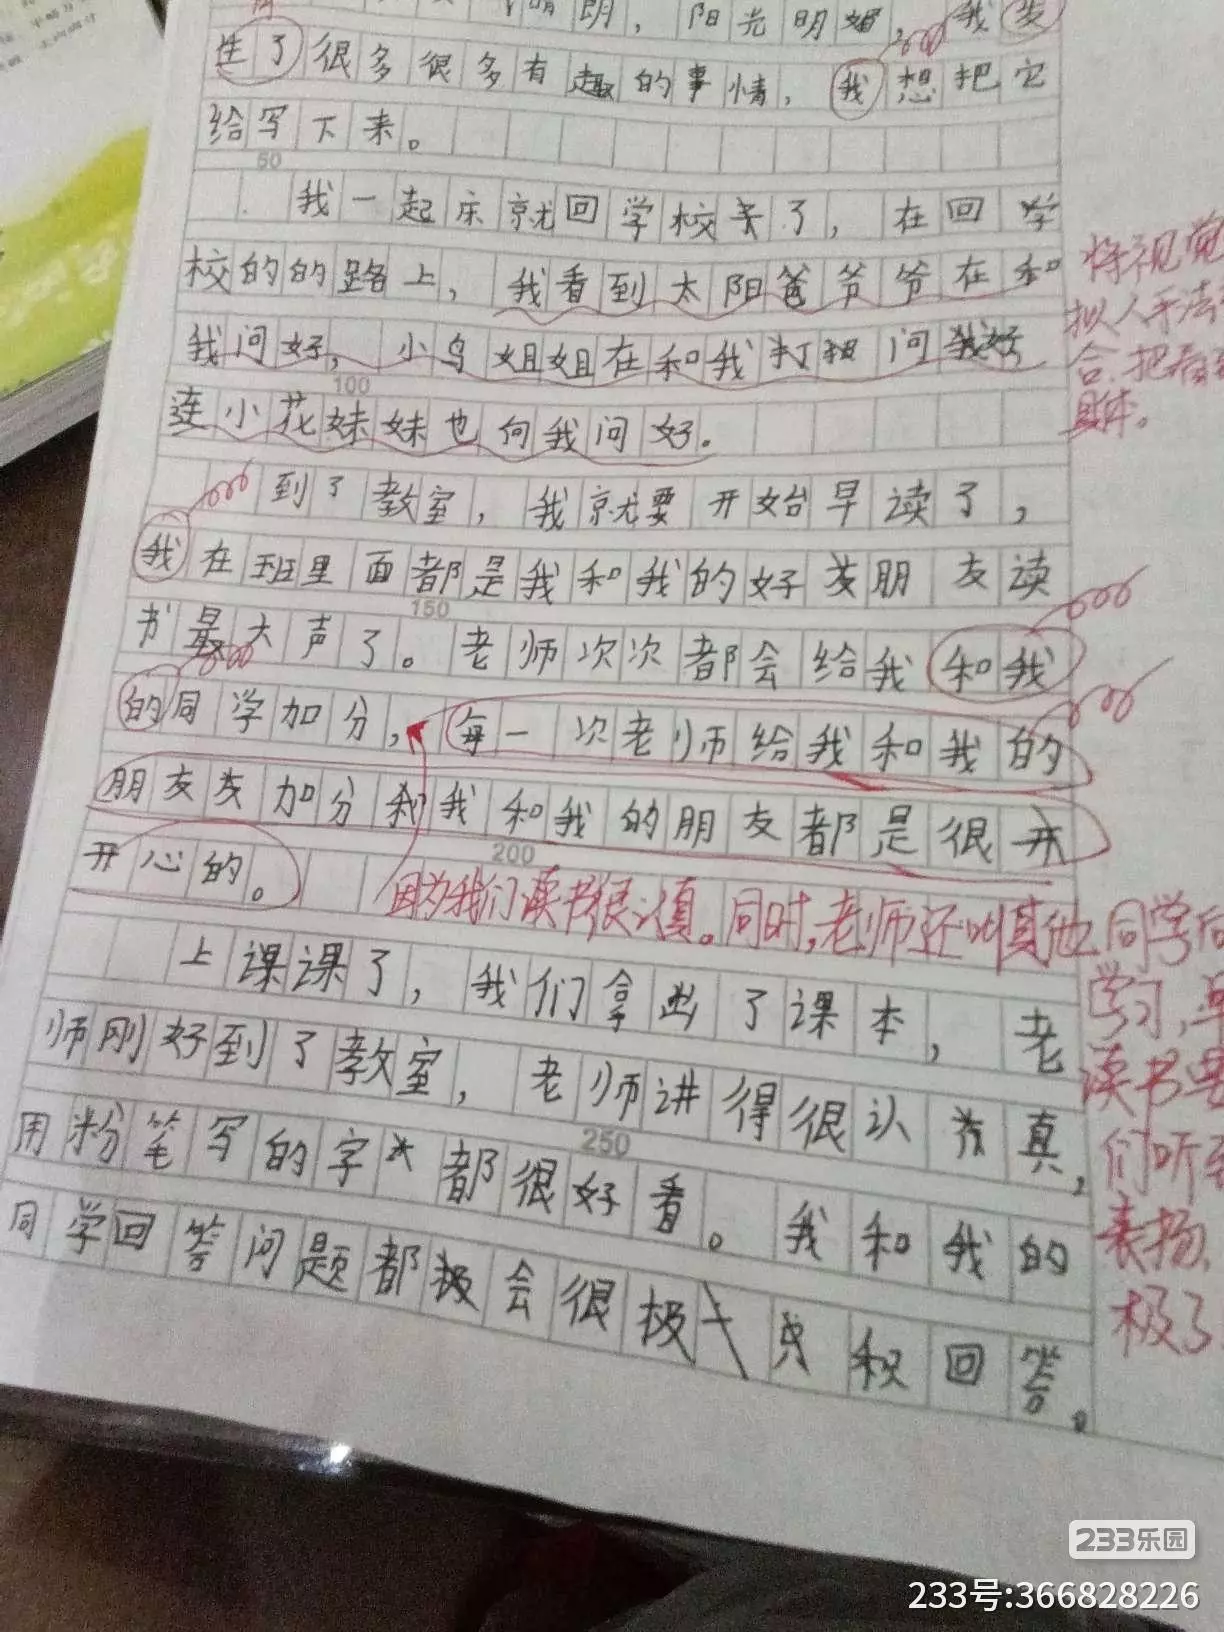 晴朗，阳光明媚，我发
生了很多很多有趣的事情，我想把它
给写下来。
50
我一起床就回学校去了，在回学
校的的路上，我看到太阳爸爷爷在和
我问好，小鸟姐姐在和我打招问我好，
100
连小花妹妹也向我问好。
到了教室，我就要开始早读了，
我在班里面都是我和我的好友朋友读
150
书最大声了。老师次次都会给我和我
的同学加分，每一次老师给我和我的
朋友友加分我我和我的朋友都是很开
200
开心的。
因为我们读书很认真。同时，老师还叫其他同学向
上课课了，我们拿出了课本，老
师刚好到了教室，老师讲得很认真，
250
用粉笔写的字都很好看。我和我的
同学回答问题都极会很极积回答。
将视觉
拟人手法
合，把看
具体。
学习，
读书要
们听到
表扬，
极了
233乐园
233号:366828226